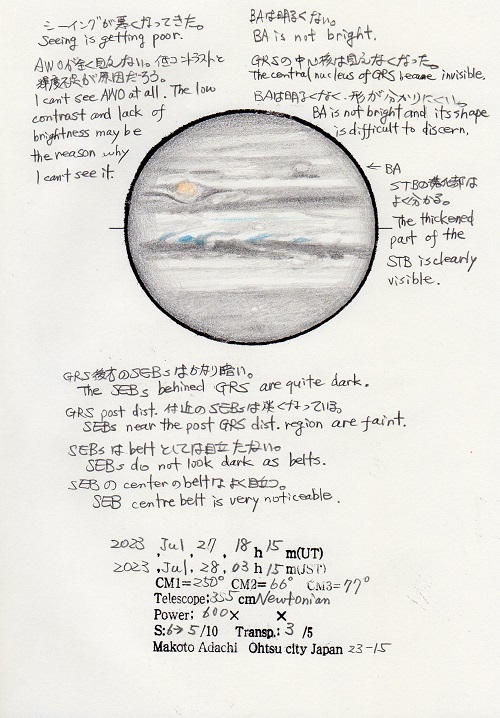 シーイングが悪くなってきた。
Seeing is getting poor.
AWOが全く見えない。低コントラストと
輝度不足が原因だろう。
I can't see AWO at all. The low
contrast and lack of
brightness may be
the reason why
I can't see it.
BAは明るくない。
BA is not bright.
GRSの中心核は見えなくなった。
The central nucleus of GRS became invisible.
BAは明るくなく、形が分かりにくい。
BA is not bright and its shape
is difficult to discern.
← BA
STBの濃化部は
よく分かる。
The thickened
part of the
STB is clearly
visible.
GRS後方のSEBsはかなり暗い。
The SEBs behined GRS are quite dark.
GRS post dist. 付近のSEBsは淡くなっている。
SEBs near the post GRS dist. region are faint.
SEBsはbeltとしては目立たない。
SEBs do not look dark as belts.
SEBのcenterのbeltはよく目立つ。
SEB centre belt is very noticeable.
2023, Jul, 27, 18h 15m(UT)
2023, Jul, 28, 03h 15m(JST)
CM1=250° CM2=66° CM3=77°
Telescope; cm Newtonian
Power; 600× ×
S:6→5/10 Transp.; 3 /5
Makoto Adachi Ohtsu city Japan 23-15